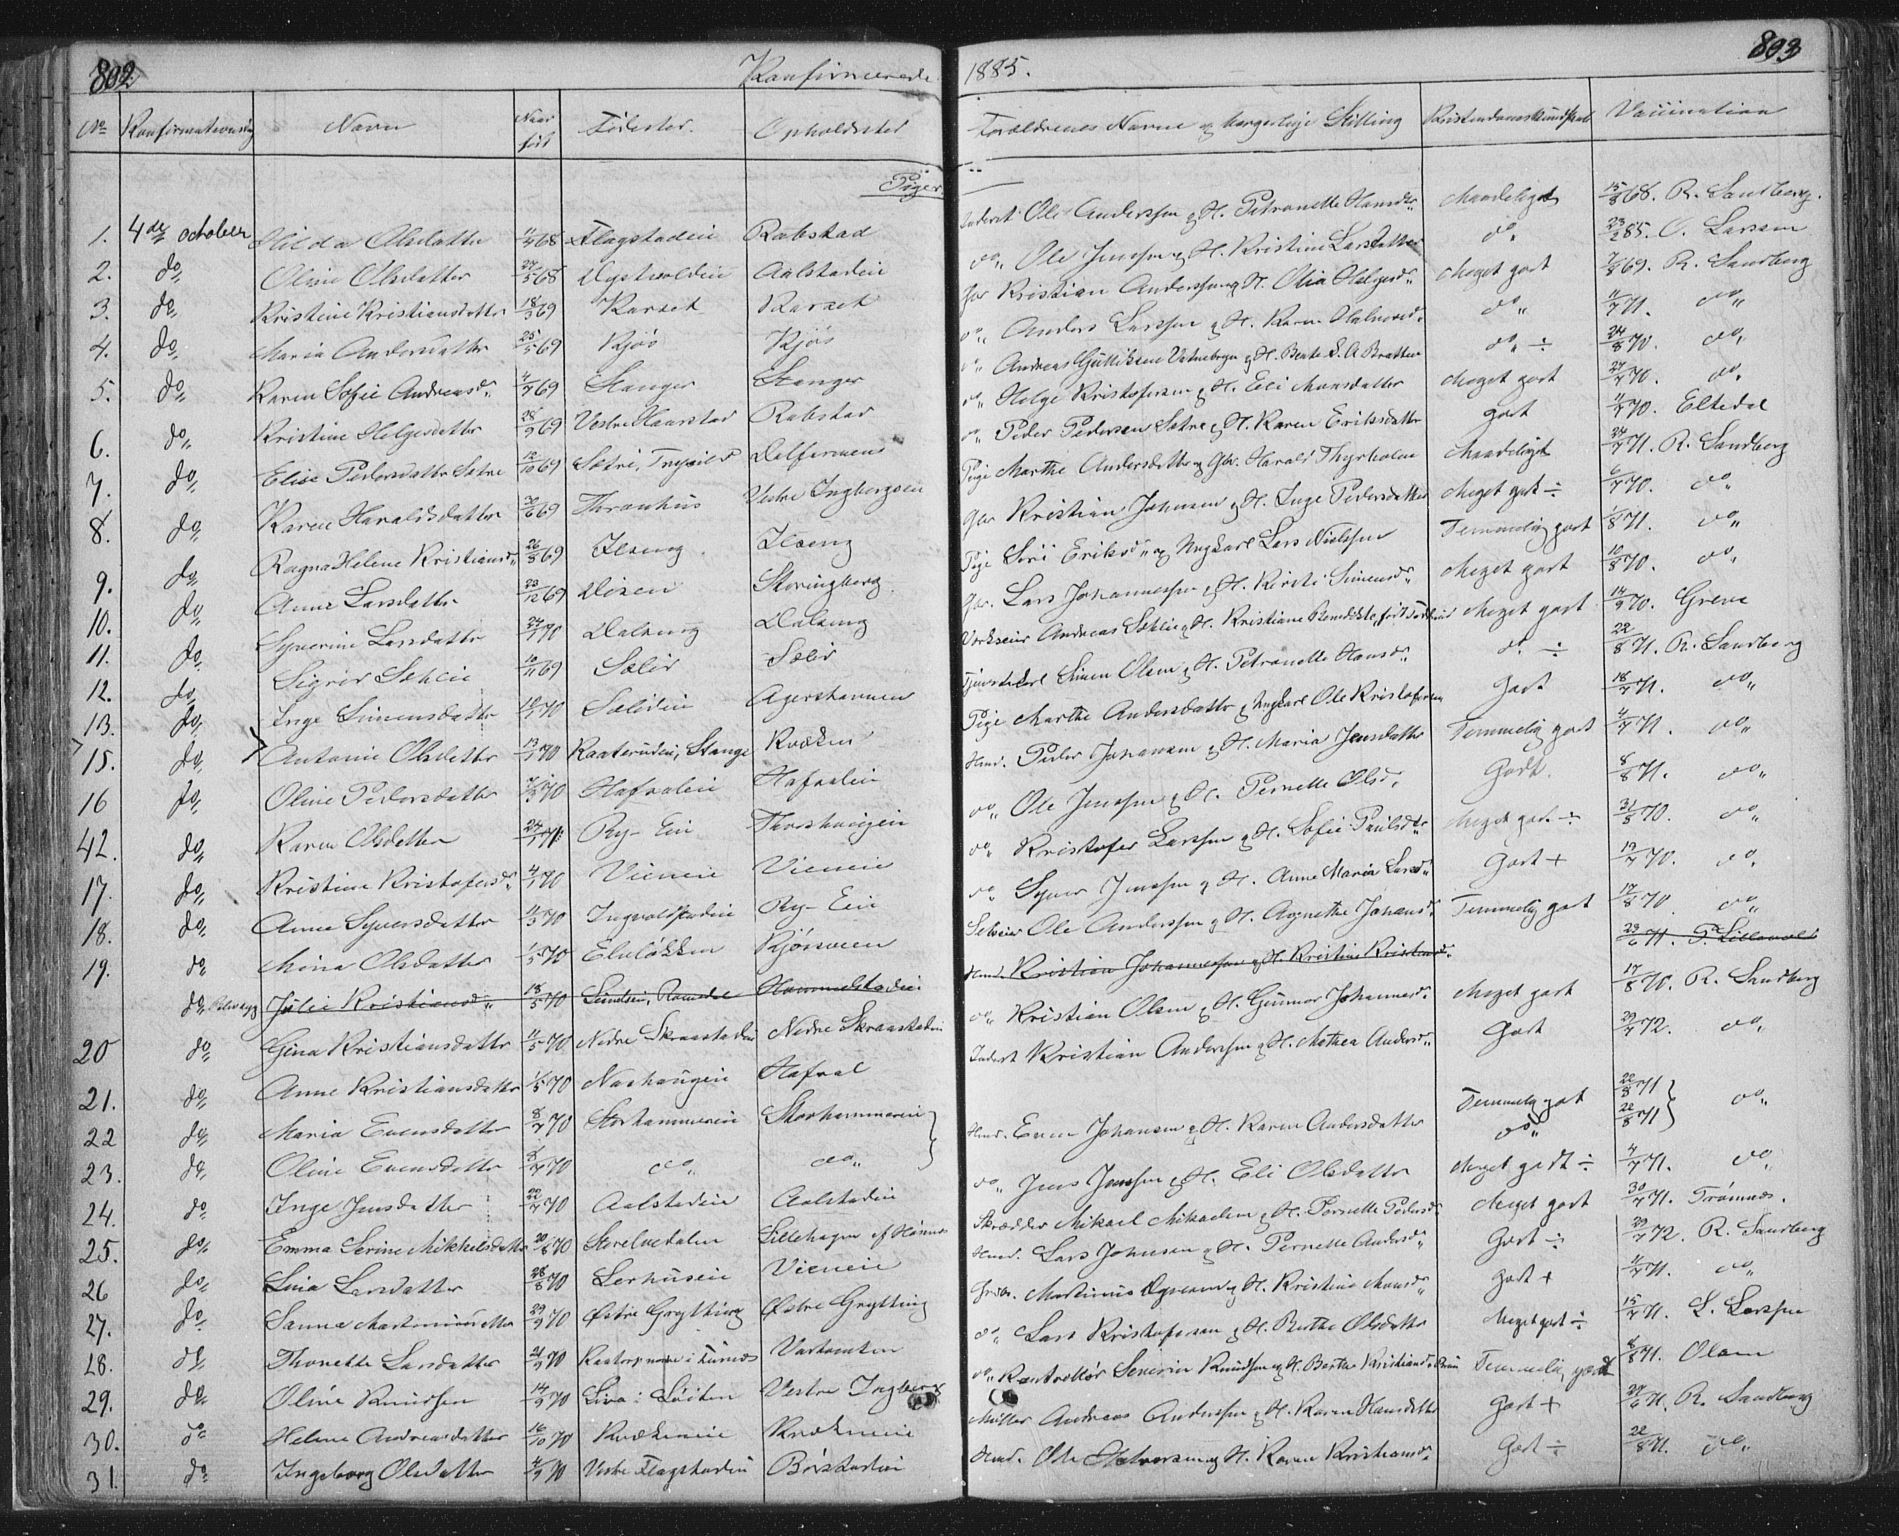 802
Konfirmerede
1885.
803
No Konfirmationsdag Navn Naar født Fødested. Opholdssted Forældrenes Navne og borgerlige Stilling Kristendomskundskab Vaccination
Piger.
1. 4de October Hilda Olsdatter 68 Flagstadeie Robstad Inderst Ole Anderssen & H. Petronelle Hansdr Maadeligt 15/8 68. R. Sandberg.
2. do Oline Olsdatter 27/5 68 Aalstadeie do Ole Jenssen & H. Kristine Larsdatter do 23/2 85. O. Larsen
3. do Kristine Kristiansdatter 18/3 69 Karset Karset Gbr Kristian Anderssen & H. Olia Helgesdr Meget godt 7/8 69. R. Sandberg
4. do Maria Andersdatter 25/5 69 Kjøs Kjøs do Anders Larssen & H. Karen do 11/7 71. do
5. do Karen Sofie Andreasdr 4/7 69 Stanger Stanger do Andreas Gulliksen & H. Beate do ÷ 24/8 70. do
6. do Kristine Helgesdatter 28/9 69 Vestre Haarstad Robstad do Helge Kristofersen & H. Eli Monsdatter Meget godt 27/7 70. do
7. do Elise Pedersdatter Sætre 12/10 69 Sætre, Trysild do Peder Pedersen Sætre & H. Karen Eriksdatter godt 11/7 70. Eltedal
8. do Karen Haraldsdatter 30/6 69 Thronhus Vestre Ingbergseie Pige Marthe Andersdatter og Gbr. Harald Thyrholm Maadeligt 24/7 71. R. Sandberg
9. do Ragna Helene Kristiansdr 26/8 69 Ilseng Ilseng Gbr Kristian Johnsen & H. Inge Pedersdatter Meget godt ÷ 6/7 70. do
10. do Anne Larsdatter 23/12 69 Disen Skoringberg Pige Siri Eriksdr og Ungkarl Lars Nielssen Temmelig godt 1/8 71. do
11. do Syverine Larsdatter 24/1 70 Dalseng Dalseng Gbr. Lars Johannessen & H. Kirsti Simensdr Meget godt 10/8 70. do
12. do Sigrid Sæhlie 10/11 69 Sælid Sælid Værkseier Andreas Sæhlie & H. Kristiane Benedikte, født Meget godt 14/9 70. Greve
13. do Inge Simensdatter 70 Sælideie Agershammen Tjenestekarl Simen Olsen & H. Petronelle Hansdr do ÷ 22/8 71. R. Sandberg
15. do Antonie Olsdatter 13/1 70 Raaterudeie, Stange Kvæken Pige Marthe Andersdatter & Ungkarl Ole Kristofersen Godt 18/7 71. do
16 do Oline Pedersdatter 70 Hafvaleie Hafvaleie Hmd. Peder Johansen & H. Maria Jensdatter Temmelig godt 4/7 71. do
42. do Karen Olsdatter 24/1 71 Ry-Eie Thorshaugen do Ole Jenssen & H. Pernelle Olsd. Godt. 8/8 71. do
17. do Kristine Kristofersdr 70 Vieneie Vieneie do Kristofer Larssen & H. Sofie Paulsdr Meget godt ÷ 31/8 70. do
18. do Anne Syversdatter 70 Ingvoldstadeie Ry-Eie do Syver Jenssen & H. Anne Maria Larsdr Godt + 19/7 70. do
19. do Mina Olsdatter 1/5 70 Eluløkken Kjørsveen Selveier Ole Anderssen & H. Agnethe Johansd. Temmelig godt 17/8 70 do
do Julie Kristiansdr 18/5 70 Romedal Hommelstadeie Hmd. Kristian Johannessen & H. Kristine Kristiansdr 23/6 71. P. Lillevold
20 do Gina Kristiansdatter 11/5 70 Nedre Skraastadeie Nedre Skraastadeie do Kristian Olsen & H. Gunnor Johannesdr Meget godt 17/8 70. R. Sandberg
21. do Anne Kristiansdatter 70 Nashaugeie Hafval Inderst Kristian Anderssen & H. Mathea Andersdr Godt 29/7 72. do
22 do Maria Evensdatter 8/7 70 Storhammereie Storhammereie Hmd. Even Johansen & H. Karen Andersdatter Temmelig godt 22/8 71 do
23. do Oline Evensdatter 8/7 70 do do do 22/8 71
24. do Inge Jensdatter 22/7 70 Aalstadeie Aalstadeie do Jens Jenssen & H. Eli Olsdatter Meget godt ÷ 4/7 71. do
25. do Emma Serine Mikkelsdatter 20/8 70 Storelvedalen Lillehagen af Hamar Skrædder Mikael Mikaelsen & H. Pernelle Pedersdr Meget godt 30/7 71. Trømnes.
26 do Lina Larsdatter 28/8 70 Lerhuseie Vieneie Hmd. Lars Johnsen & H. Pernelle Andersdr Godt ÷ 29/7 72. R. Sandberg
27. do Sanna 29/9 70 Østre Grytting Østre Grytting Gbr. Martinus Syversen & H. Kristine Monsdr godt + 4/7 71. do
28. do Thonette Larsdatter 21/9 70 do Lars Kristofersen & H. Berthe Olsdatter Meget godt ÷ 15/7 71. L. Larssen
29. do Oline Knudsen 14/9 70 i Løiten Vestre Ingberg do Kontrollør Severin Knudssen & H. Berthe Temmelig godt 8/8 71. Olsen
30. do Helene Andreasdatter 16/10 70 Kvækeneie Kvækeneie Møller Andreas Anderssen & H. Karen Hansdatter Godt + 27/6 71. R. Sandberg
31. do Ingeborg Olsdatter 4/9 70 Vestre Flagstadeie Børstadeie Hmd. Ole Halvorsen & H. Karen Kristiansdr Godt ÷ 22/8 71. do